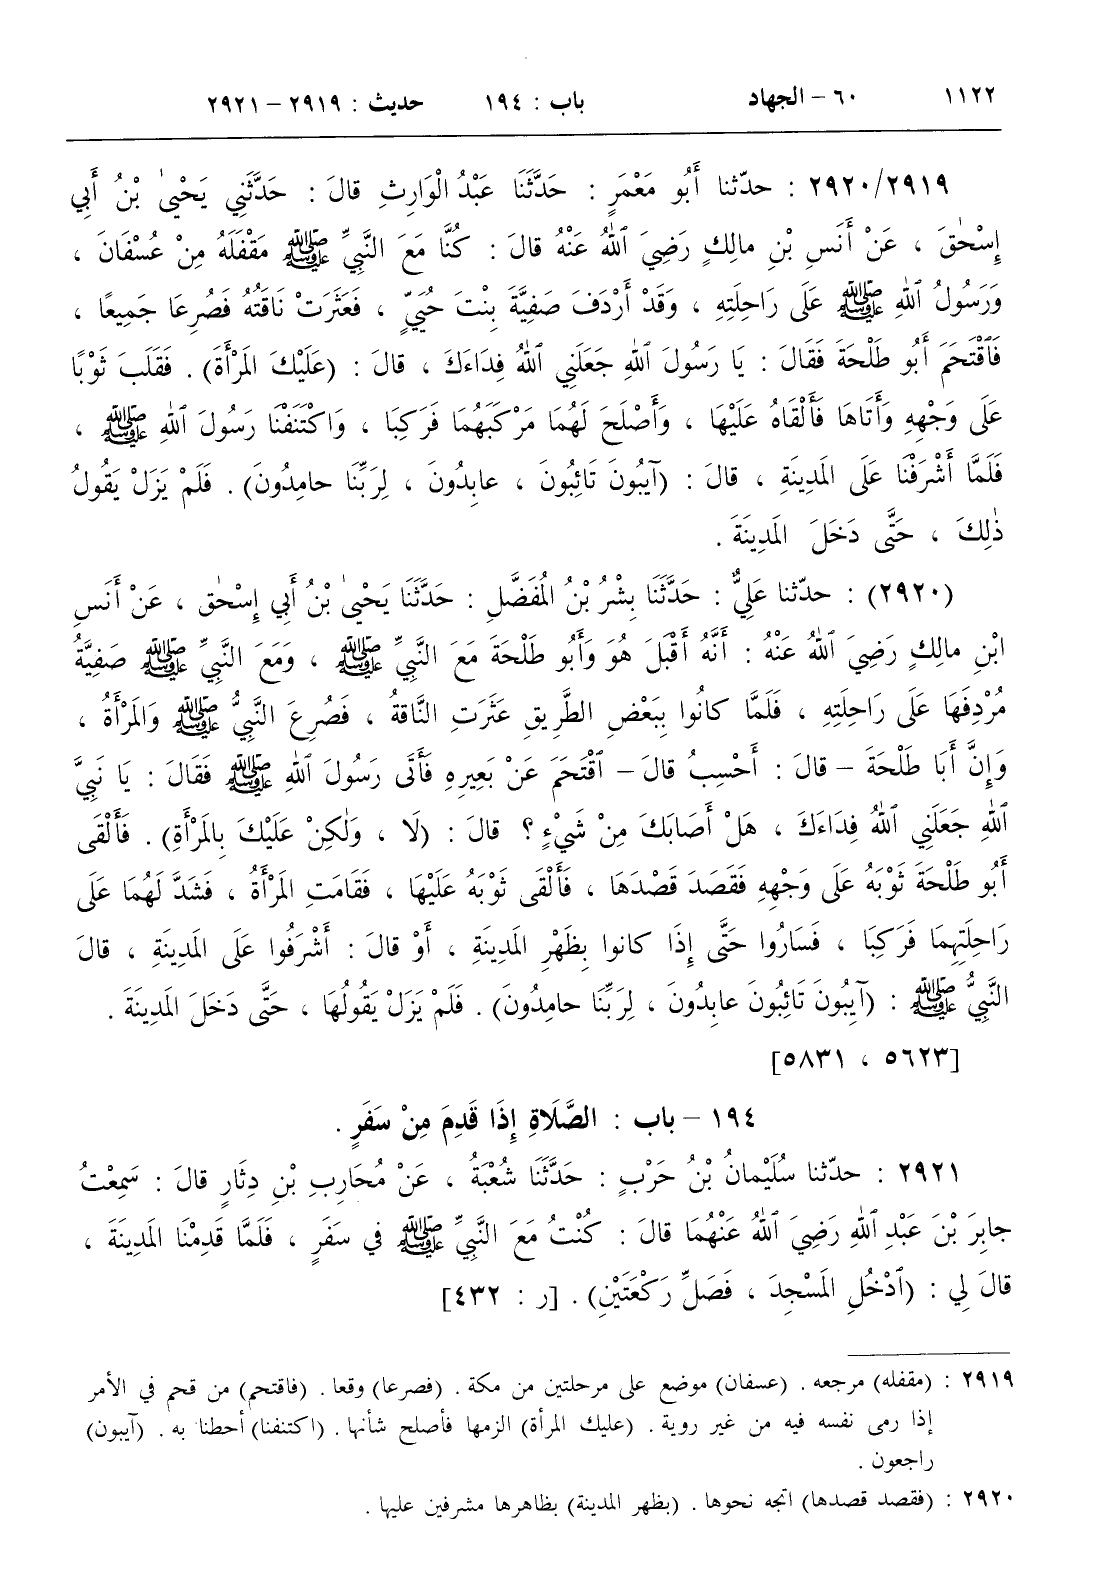 ١١٢٢ ٦٠ – الجهاد باب : ١٩٤ حديث : ٢٩١٩ – ٢٩٢١
٢٩٢٠/٢٩١٩ : حدّثنا أَبُو مَعْمَرٍ : حَدَّثَنَا عَبْدُ الْوَارِثِ قالَ : حَدَّثَنِي يَحْيىٰ بْنُ أَبِي
إِسْحٰقَ ، عَنْ أَنَسِ بْنِ مالِكٍ رَضِيَ ٱللهُ عَنْهُ قالَ : كُنَّا مَعَ النَّبِيِّ ﷺ مَقْفَلَهُ مِنْ عُسْفَانَ ،
وَرَسُولُ ٱللهِ ﷺ عَلَى رَاحِلَتِهِ ، وَقَدْ أَرْدَفَ صَفِيَّةَ بِنْتَ حُيَيٍّ ، فَعَثَرَتْ نَاقَتُهُ فَصُرِعَا جَمِيعًا ،
فَٱقْتَحَمَ أَبُو طَلْحَةَ فَقَالَ : يَا رَسُولَ ٱللهِ جَعَلَنِي ٱللهُ فِدَاءَكَ ، قالَ : (عَلَيْكَ المَرْأَةَ) . فَقَلَبَ ثَوْبًا
عَلَى وَجْهِهِ وَأَتَاهَا فَأَلْقَاهُ عَلَيْهَا ، وَأَصْلَحَ لَهُمَا مَرْكَبَهُمَا فَرَكِبَا ، وَاكْتَنَفْنَا رَسُولَ ٱللهِ ﷺ ،
فَلَمَّا أَشْرَفْنَا عَلَى المَدِينَةِ ، قالَ : (آيِبُونَ تَائِبُونَ ، عابِدُونَ ، لِرَبِّنَا حامِدُونَ) . فَلَمْ يَزَلْ يَقُولُ
ذٰلِكَ ، حَتَّى دَخَلَ المَدِينَةَ .
(٢٩٢٠) : حدّثنا عَلِيٌّ : حَدَّثَنَا بِشْرُ بْنُ المُفَضَّلِ : حَدَّثَنَا يَحْيىٰ بْنُ أَبِي إِسْحٰق ، عَنْ أَنَسِ
ابْنِ مالِكٍ رَضِيَ ٱللهُ عَنْهُ : أَنَّهُ أَقْبَلَ هُوَ وَأَبُو طَلْحَةَ مَعَ النَّبِيِّ ﷺ ، وَمَعَ النَّبِيِّ ﷺ صَفِيَّةُ
مُرْدِفَهَا عَلَى رَاحِلَتِهِ ، فَلَمَّا كانُوا بِبَعْضِ الطَّرِيقِ عَثَرَتِ النَّاقَةُ ، فَصُرِعَ النَّبِيُّ ﷺ وَالمَرْأَةُ ،
وَإِنَّ أَبَا طَلْحَةَ – قالَ : أَحْسِبُ قالَ – ٱقْتَحَمَ عَنْ بَعِيرِهِ فَأَتَى رَسُولَ ٱللهِ ﷺ فَقَالَ : يَا نَبِيَّ
ٱللهِ جَعَلَنِي ٱللهُ فِدَاءَكَ ، هَلْ أَصَابَكَ مِنْ شَيْءٍ ؟ قالَ : (لَا ، وَلٰكِنْ عَلَيْكَ بِالمَرْأَةِ) . فَأَلْقَى
أَبُو طَلْحَةَ ثَوْبَهُ عَلَى وَجْهِهِ فَقَصَدَ قَصْدَهَا ، فَأَلْقَى ثَوْبَهُ عَلَيْهَا ، فَقَامَتِ المَرْأَةُ ، فَشَدَّ لَهُمَا عَلَى
رَاحِلَتِهِمَا فَرَكِبَا ، فَسَارُوا حَتَّى إِذَا كانوا بِظَهْرِ المَدِينَةِ ، أَوْ قالَ : أَشْرَفُوا عَلَى المَدِينَةِ ، قالَ
النَّبِيُّ ﷺ : (آيِبُونَ تَائِبُونَ عابِدُونَ ، لِرَبِّنَا حامِدُونَ) . فَلَمْ يَزَلْ يَقُولُهَا ، حَتَّى دَخَلَ المَدِينَةَ .
[٥٦٢٣ ، ٥٨٣١]
١٩٤ – باب : الصَّلَاةِ إِذَا قَدِمَ مِنْ سَفَرٍ .
٢٩٢١ : حدّثنا سُلَيْمانُ بْنُ حَرْبٍ : حَدَّثَنَا شُعْبَةُ ، عَنْ مُحَارِبِ بْنِ دِثَارٍ قالَ : سَمِعْتُ
جابِرَ بْنَ عَبْدِ ٱللهِ رَضِيَ ٱللهُ عَنْهُمَا قالَ : كُنْتُ مَعَ النَّبِيِّ ﷺ في سَفَرٍ ، فَلَمَّا قَدِمْنَا المَدِينَةَ ،
قالَ لِي : (ٱدْخُلِ المَسْجِدَ ، فَصَلِّ رَكْعَتَيْنِ) . [ر : ٤٣٢]
٢٩١٩ : (مقفله) مرجعه . (عسفان) موضع على مرحلتين من مكة . (فصرعا) وقعا . (فاقتحم) من قحم في الأمر
إذا رمى نفسه فيه من غير روية . (عليك المرأة) الزمها فأصلح شأنها . (اكتنفنا) أحطنا به . (آيبون)
راجعون .
٢٩٢٠ : (فقصد قصدها) اتجه نحوها . (بظهر المدينة) بظاهرها مشرفين عليها .